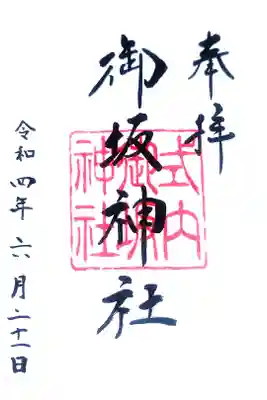 奉拝
御坂神社
式内
神社
令和四年六月二十一日